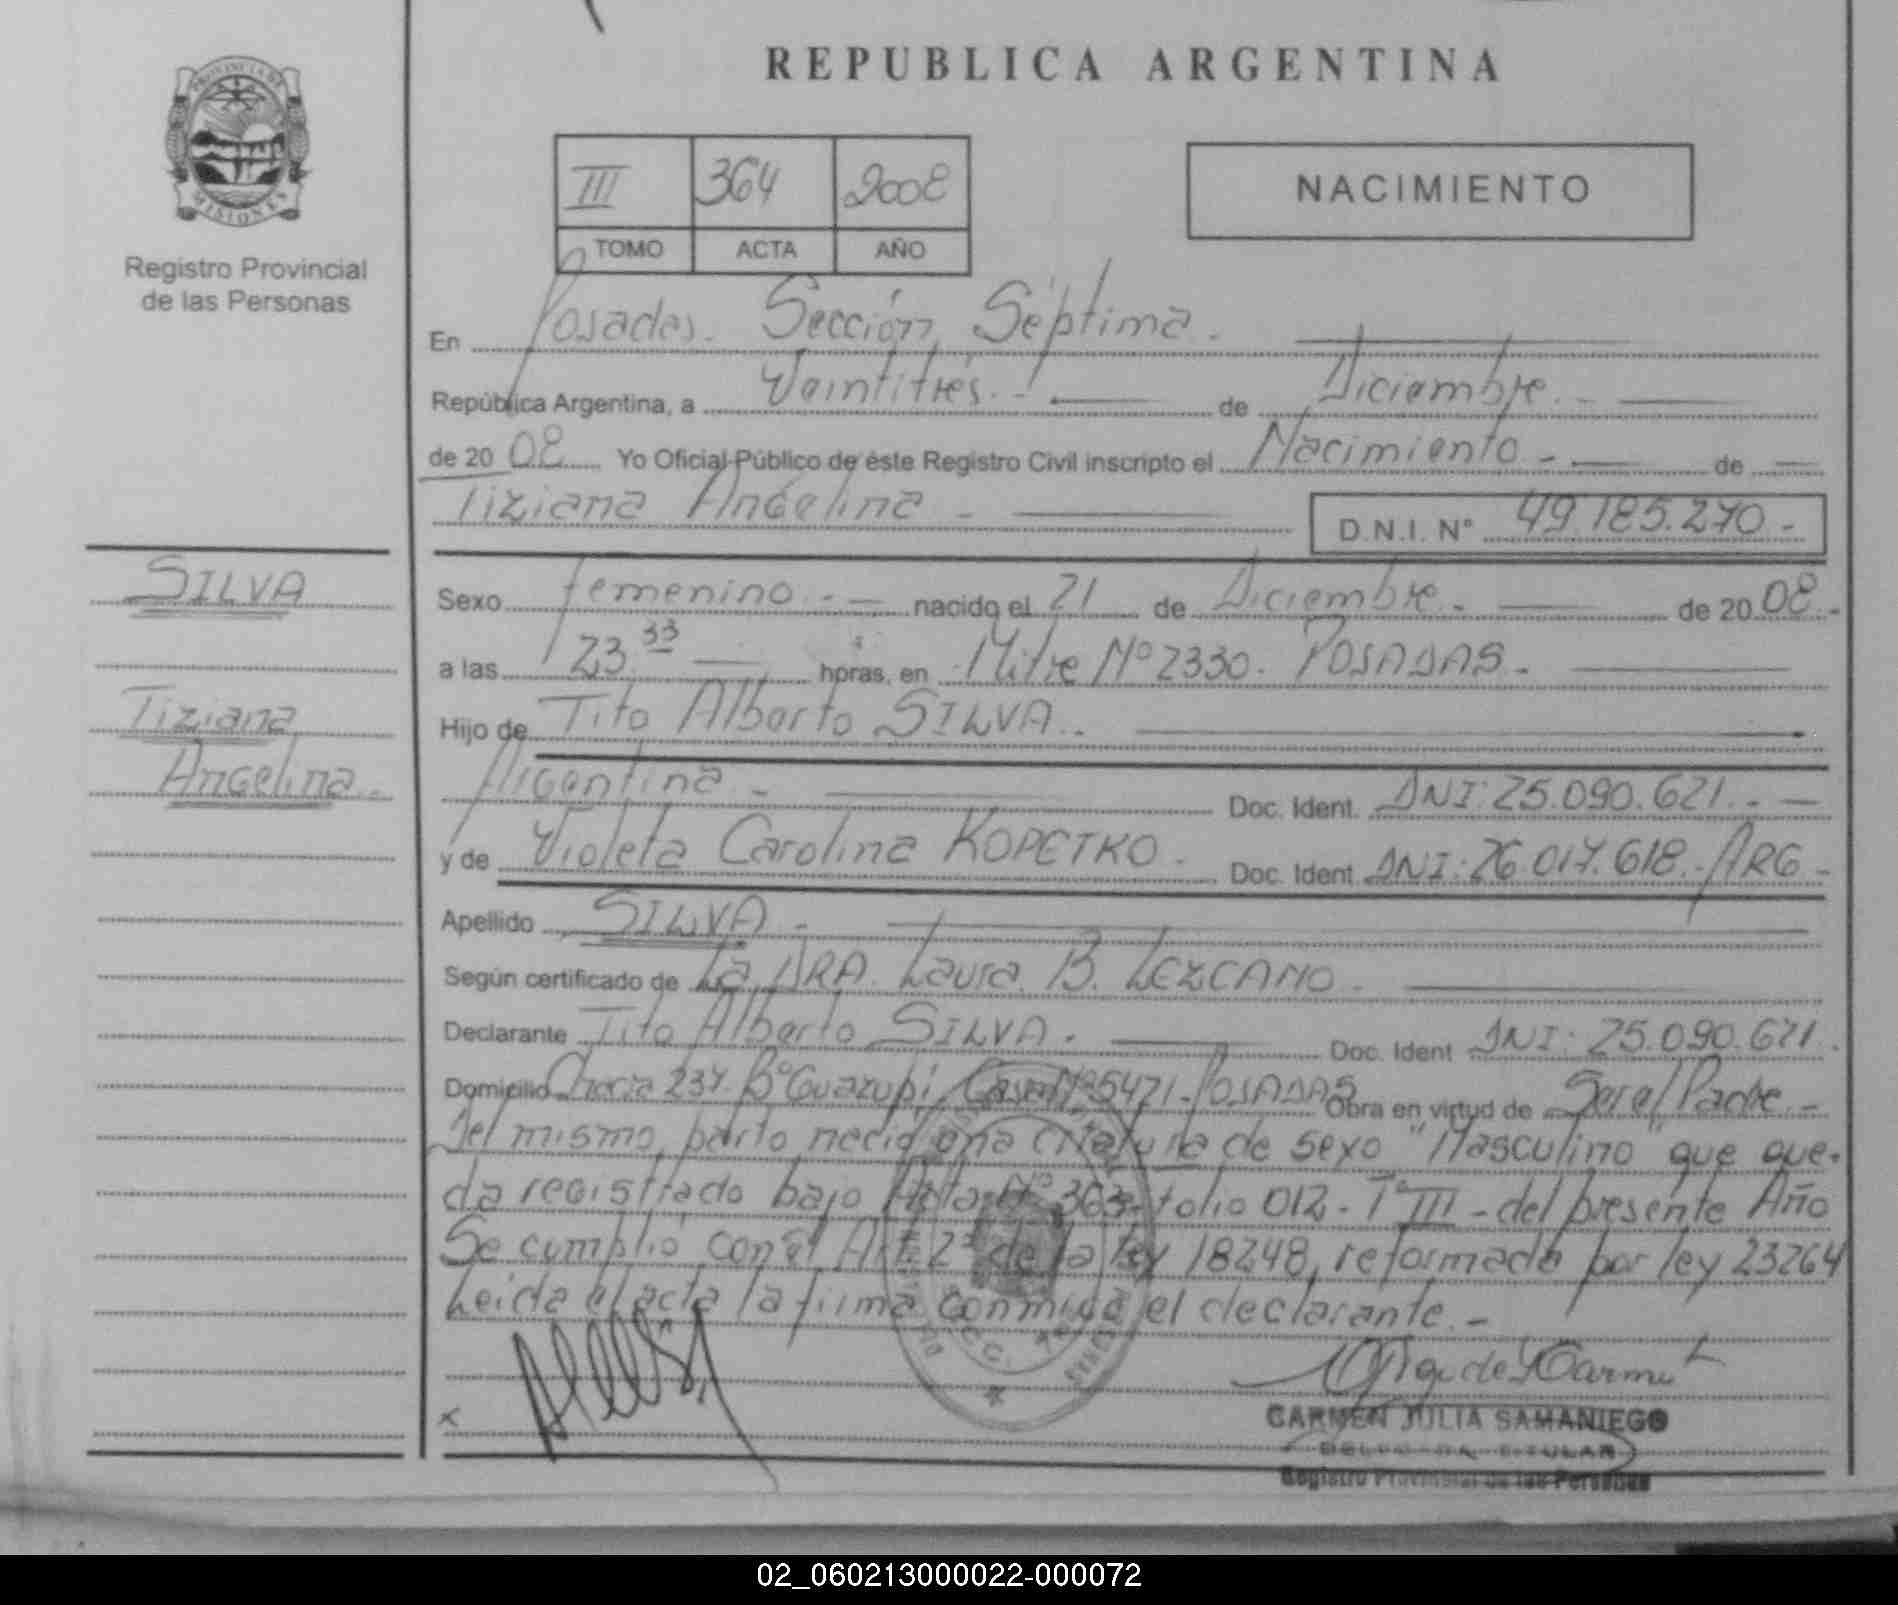 REPUBLICA ARGENTINA
PROVINCIA DE
MISIONES
Registro Provincial
de las Personas
III 364 2008
TOMO ACTA AÑO
NACIMIENTO
En Posadas. Sección Séptima.
República Argentina, a Veintitrés.- de Diciembre.-
de 20 08 Yo Oficial Público de éste Registro Civil inscripto el Nacimiento.- de
Tiziana Angelina - D.N.I. N° 49.185.270.-
SILVA
Tiziana
Angelina.
Sexo femenino.- nacido el 21 de Diciembre.- de 20 08.-
a las 23.33 horas, en Mitre N° 2330. POSADAS.
Hijo de Tito Alberto SILVA.
Argentina.- Doc. Ident. DNI: 25.090.621.-
y de Violeta Carolina KOPETKO. Doc. Ident. DNI: 26.017.618.-ARG-
Apellido SILVA.-
Según certificado de La DRA. Laura B. LEZCANO.
Declarante Tito Alberto SILVA. Doc. Ident DNI: 25.090.621.
Domicilio 237. B° Guazupi, Casa N° 5471-POSADAS Obra en virtud de Ser el Padre.-
Del mismo parto nació una criatura de sexo "Masculino" que que-
da registrado bajo Acta N° 363- folio 012- T° III - del presente Año
Se cumplió con el Art. 2° de la ley 18248, reformada por ley 23264
Leida el acta la firma conmigo el declarante.-
x
CARMEN JULIA SAMANIEGO
DELEGADA TITULAR
Registro Provincial de las Personas
02_060213000022-000072